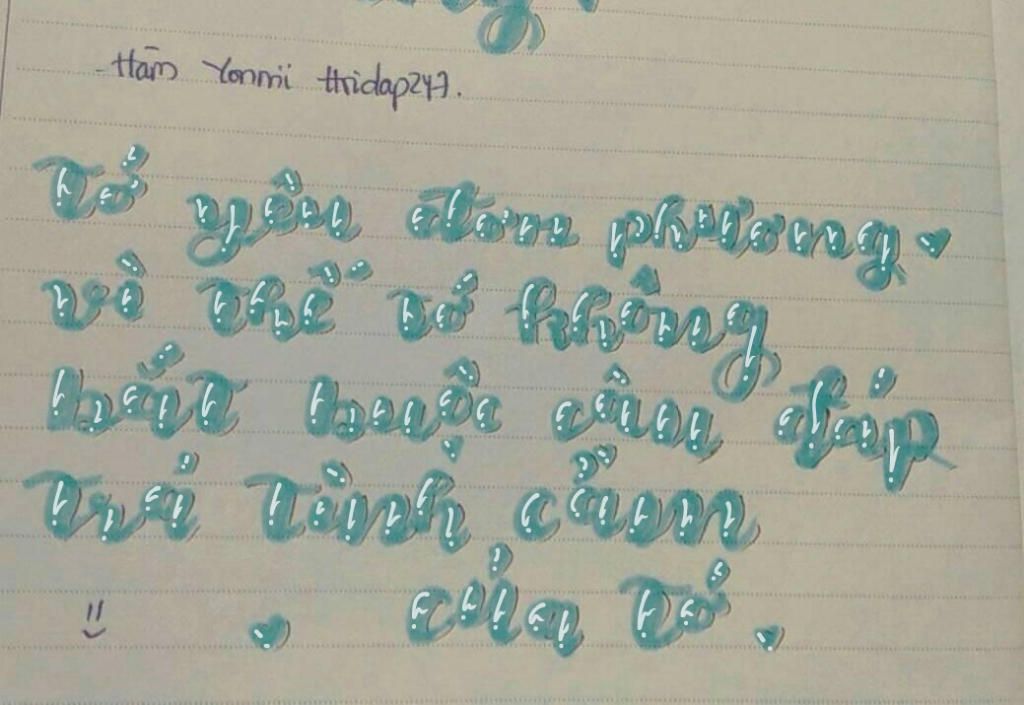 - Hàm Yonmi hridap247.
Tớ yêu đơn phương
vì thế tớ không
bắt buộc cậu đáp
trả tình cảm
của tớ.